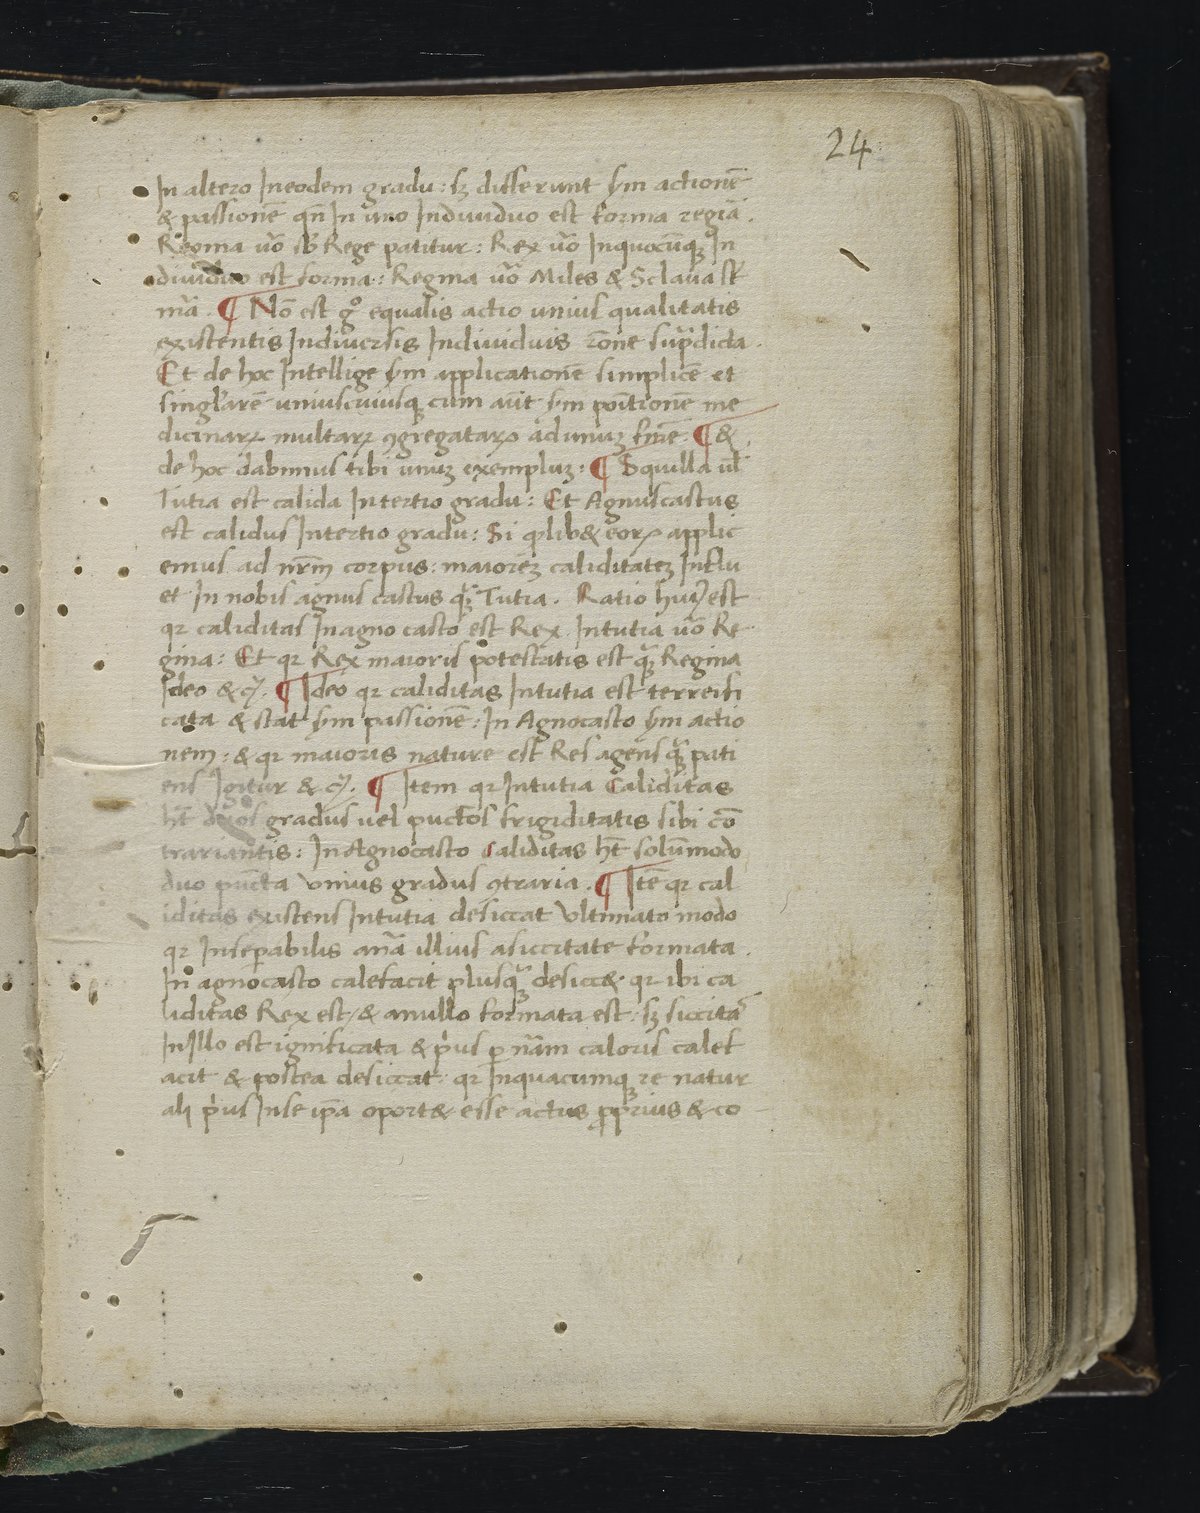 24
In altero Ineodem gradu: sꝫ differunt ẜm actionē
& passionē qn̄ In uno Indiuiduo est forma regia.
Regina ūo sb Rege patitur: Rex ūo Inquocūqꝫ In
diuiduo est forma: Regina ūo Miles & Sclaua st̄
mā. ¶ Nō est gͦ equalis actio unius qualitatis
existentis Indiuersis Indiuiduis rōne sup̄dicta.
Et de hoc Intellige ẜm applicationē simplicē et
singl'arē uniuscuiusqꝫ cum aūt ẜm poītionē me
dicinaꝝ multaꝝ ꝯgregataꝝ adunuꝫ finē. ¶ &
de hoc dabimus tibi unuꝫ exempluꝫ: ¶ Squilla ul'
Tutia est calida In tertio gradu: Et Agnuscastus
est calidus Intertio gradu: Si qlib& eoꝝ applic
emus ad nr̄m corpus: maiorēꝫ caliditateꝫ Influ
et In nobis agnus castus qꝫ Tutia. Ratio huiꝰ est
qr caliditas Inagno casto est Rex. Intutia ūo Re
gina: Et qr Rex maioris potestatis est qꝫ Regina
Ideo &cꝭ. ¶ Ideo qr caliditas Intutia est terreifi
cata & stat ẜm passionē: In Agnocasto ẜm actio
nem: & qr maioris nature est Res agens qꝫ pati
ens Igitur &cꝭ. ¶ Item qr Intutia Caliditas
ht̄ duos gradus uel puctos frigiditatis sibi cō
trariantis: In Agnocasto Caliditas ht̄ solumodo
duo pūcta unius gradus ꝯtraria. ¶ Itē qr cal
iditas existens Intutia desiccat Vltimato modo
qr Insepabilis anā illius asiccitate formata.
In agnocasto calefacit plusqꝫ desicc& qr ibi ca
liditas Rex est, & anullo formata est, sꝫ siccitā
Inillo est ignificata & p'us p nām caloris calef
acit & postea desiccat: qr Inquacumqꝫ re natur
ali p'us Inse ip̄a oport& esse actus prius & co